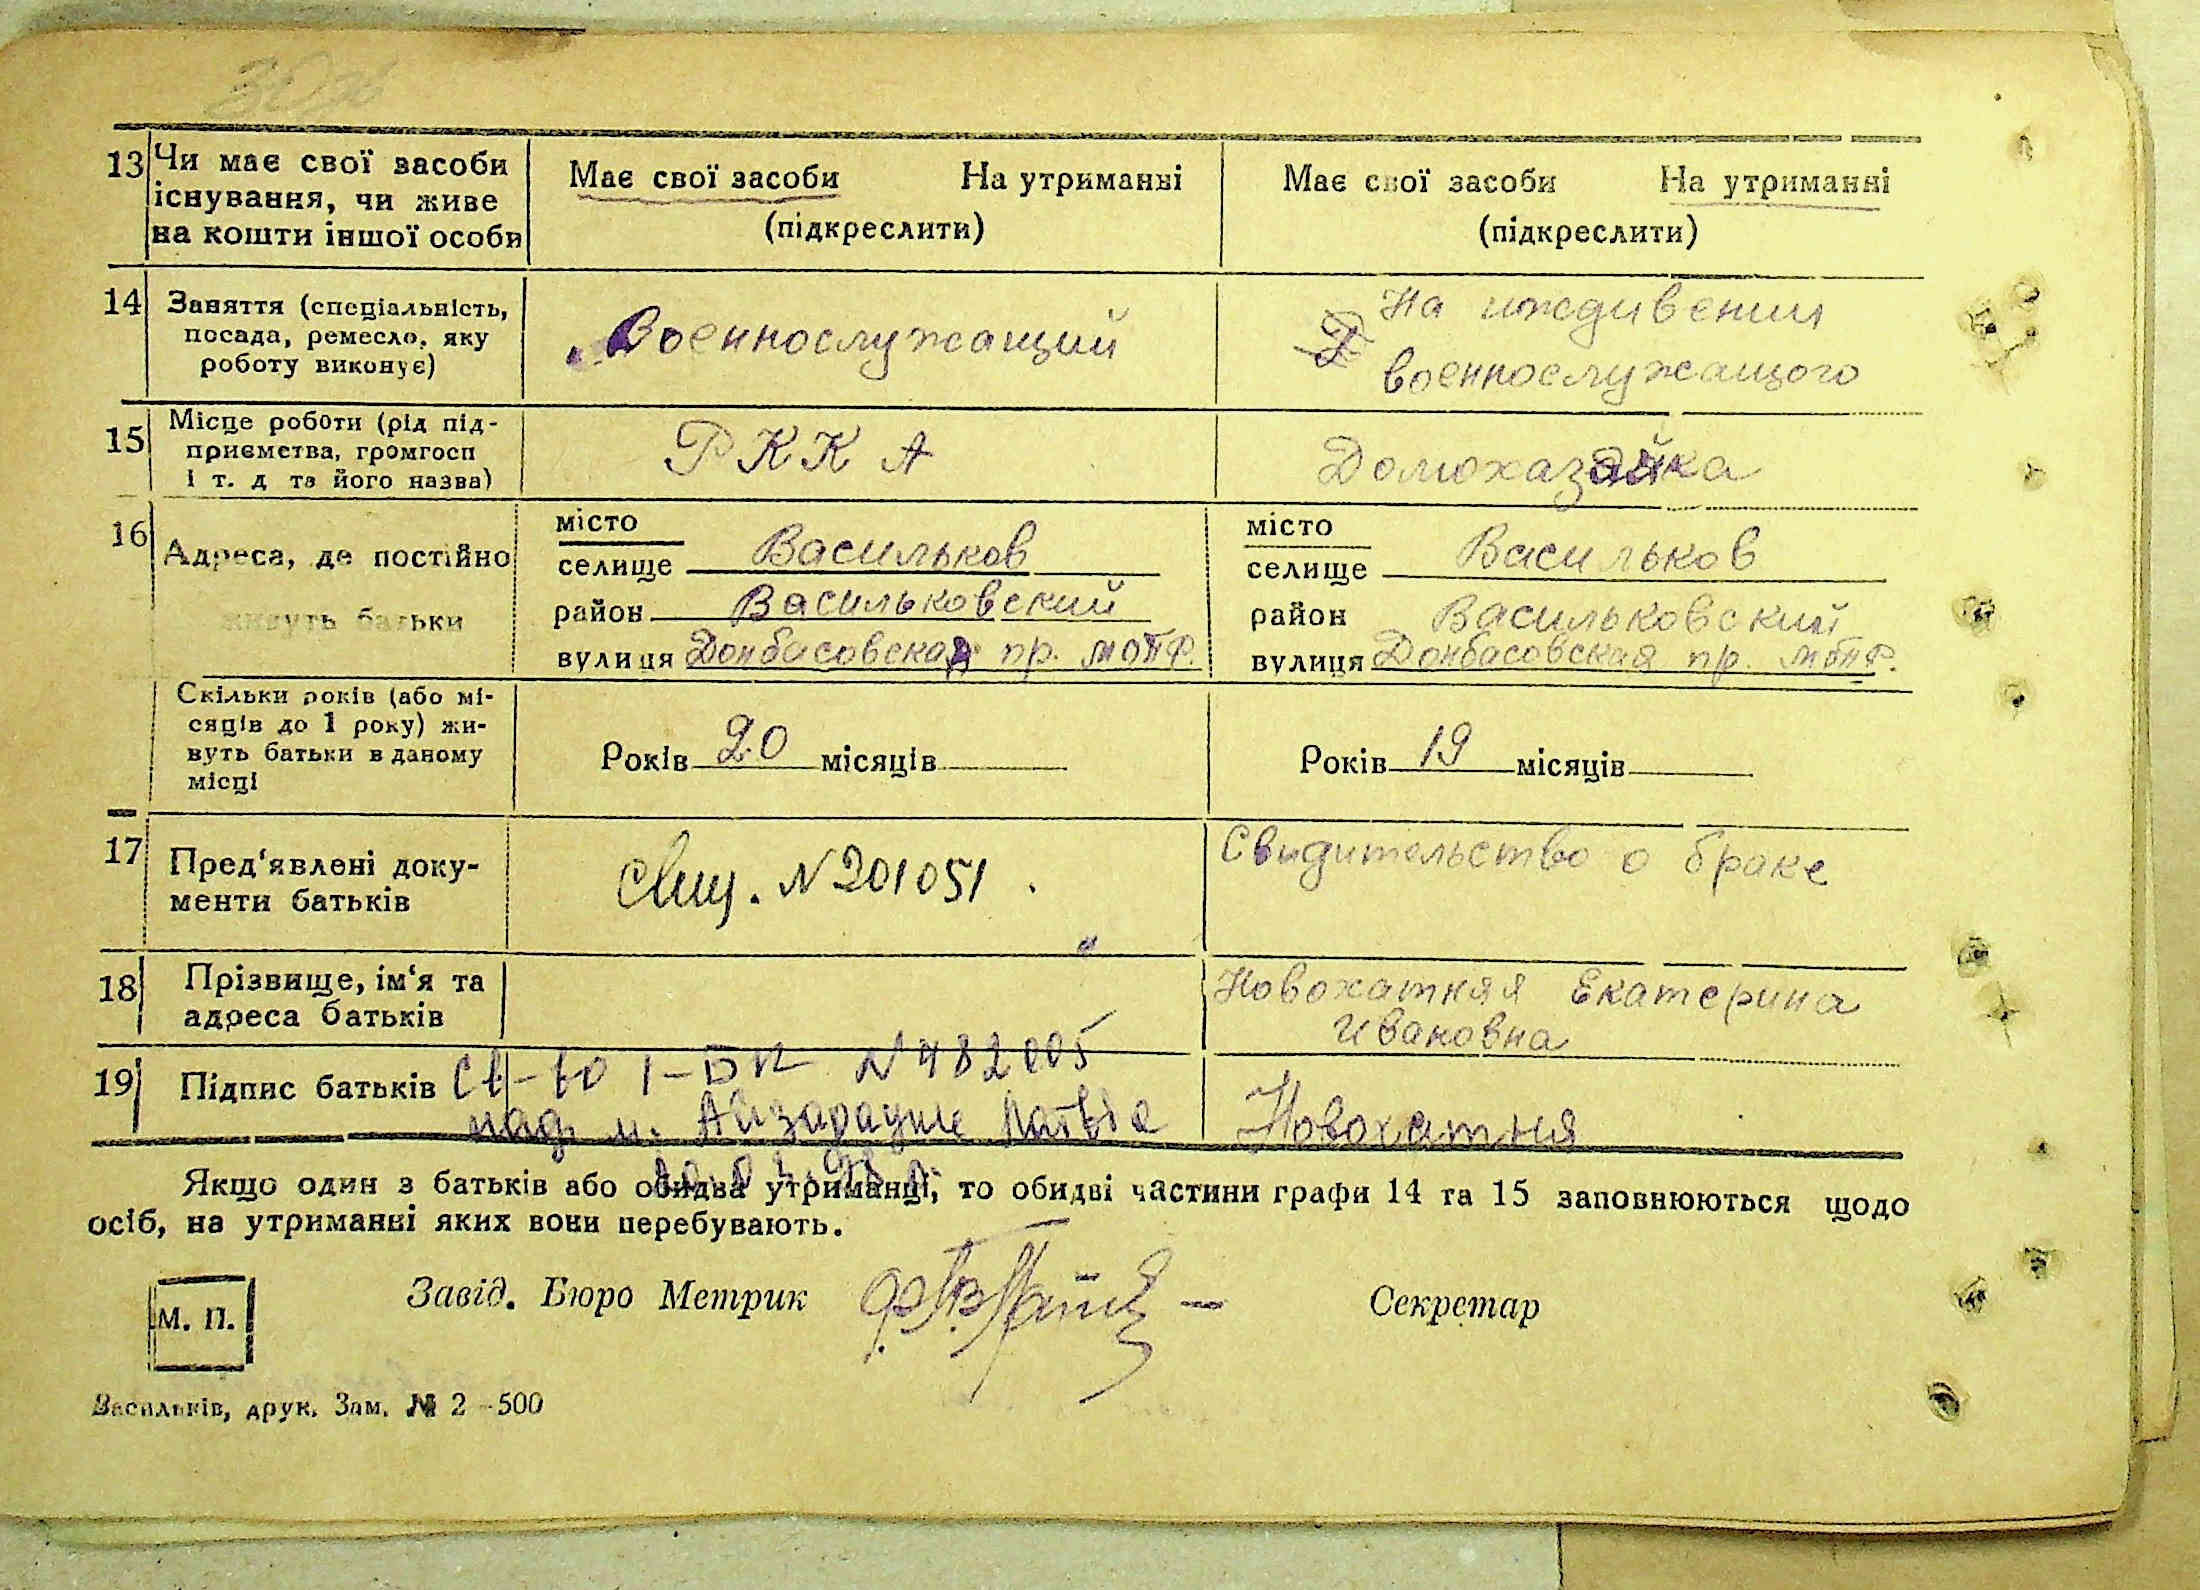 13 Чи має свої засоби існування, чи живе на кошти іншої особи
Має свої засоби На утриманні
(підкреслити)
Має свої засоби На утриманні
(підкреслити)
14 Заняття (спеціальність,
посада, ремесло, яку
роботу виконує)
Военнослужащий
На иждивении
военнослужащого
15 Місце роботи (рід під-
приємства, громгосп
і т. д та його назва)
РККА
Домохазайка
16 Адреса, де постійно
живуть батьки
місто
селище Васильков
район Васильковский
вулиця Донбасовская пр.
місто
селище Васильков
район Васильковский
вулиця Донбасовская пр.
Скільки років (або мі-
сяців до 1 року) жи-
вуть батьки в даному
місці
Років 20 місяців
Років 19 місяців
17 Пред‘явлені доку-
менти батьків
N 201051.
Свидительство о браке
18 Прізвище, ім‘я та
адреса батьків
Новохатняя Екатерина
Ивановна
19 Підпис батьків
Св-во I-БК N 482005
м. Латвія
Новохатня
Якщо один з батьків або обидва утриманці, то обидві частини графи 14 та 15 заповнюються щодо
осіб, на утриманні яких вони перебувають.
М. П.
Завід. Бюро Метрик
Секретар
Васильків, друк. Зам. № 2—500